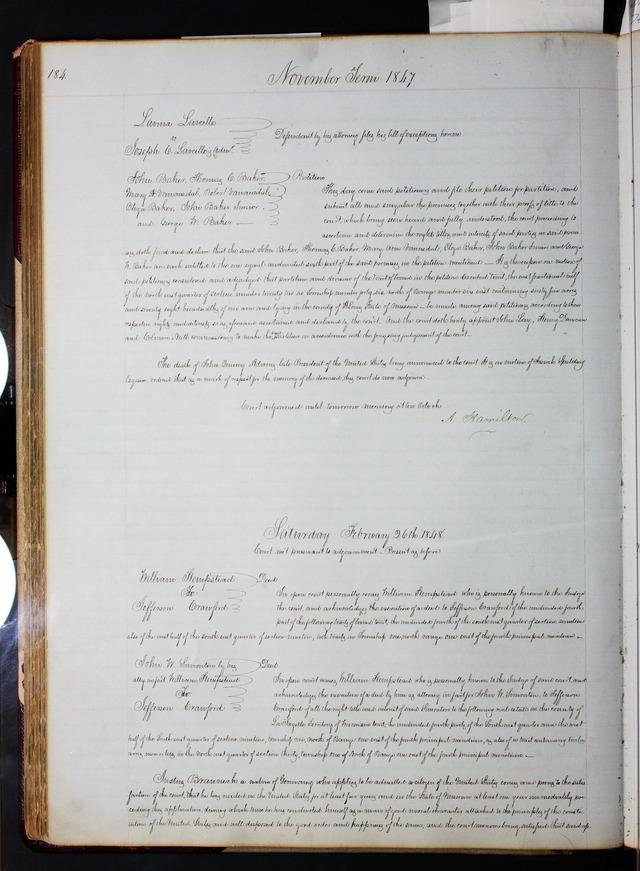 184
November Term 1847
Lavina Lavielle
vs
Joseph C. Lavielles Admr.
Defendant by his attorney files his bill of exceptions herein
John Baker, Thomas C. Baker,
Mary A. Vanausdal, Robert Vanausdal,
Eloya Baker, John Baker Junior
and George W. Baker
Partition
This day come said petitioners and file their petition for partition, and
submit all and singular the premises together with their proofs of title to the
court, which being seen heard and fully understood, the court proceeding to
ascertain and determine the rights titles and interests of said parties in said premi-
ses, doth find and declare that the said John Baker, Thomas C. Baker, Mary Ann Vanausdal, Eloya Baker, John Baker Junior and George
W. Baker are each entitled to the one equal undivided sixth part of the said premises in the petition mentioned. It is therefore on motion of
said petitioners considered and adjudged that partition and division of the tract of land in the petition described to wit, the east fractional half
of the north east quarter of section number twenty two in township number forty six north of Range number six east containing sixty five acres
and seventy eight hundredths of one acre and lying in the county of St Louis State of Missouri be made among said petitioners according to their
respective rights and interests so as aforesaid ascertained and declared by the court. And the court doth hereby appoint John Lay, Henry Duncan
and Coleman Stith commissioners to make the partition in accordance with the foregoing judgement of the court.
The death of John Quincy Adams late President of the United States being announced to the court It is on motion of Josiah Spalding
Esquire ordered that as a mark of respect for the memory of the deceased this court do now adjourn.
Court adjourned until tomorrow morning at ten o'clock
A. Hamilton
Saturday February 26th 1848
Court met pursuant to adjournment. Present as before
William Hempstead
To
Jefferson Crawford
Deed
In open court personally comes William Hempstead who is personally known to the Judge of
the court, and acknowledges the execution of a deed to Jefferson Crawford of the undivided fourth
part of the following tracts of land to wit, the undivided fourth of the south east quarter of section nineteen
also of the east half of the south east quarter of section nineteen, all in township one, north range one east of the fourth principal meridian.
John W. Simonton by his
atty in fact William Hempstead
To
Jefferson Crawford
Deed
In open court comes William Hempstead who is personally known to the Judge of said court, and
acknowledges the execution of a deed by him as attorney in fact for John W. Simonton to Jefferson
Crawford of all the right title and interest of said Simonton to the following real estate in the county of
La Fayette Territory of Wisconsin to wit, the undivided fourth part of the South east quarter and the east
half of the South east quarter of section nineteen, township one, north of Range one east of the fourth principal meridian, as also of a tract containing twelve
acres, more or less, in the North east quarter of section thirty, township one of North of Range one east of the fourth principal meridian.
Justin Braunecks a native of Germany who applies to be admitted a citizen of the United States, comes and proves to the satis-
faction of the court, that he has resided in the United States for at least five years and in the State of Missouri at least one year immediately pre-
ceding this application, during which time he has conducted himself as a man of good moral character attached to the principles of the consti-
tution of the United States and well disposed to the good order and happiness of the same, and the court moreover being satisfied that said ap-